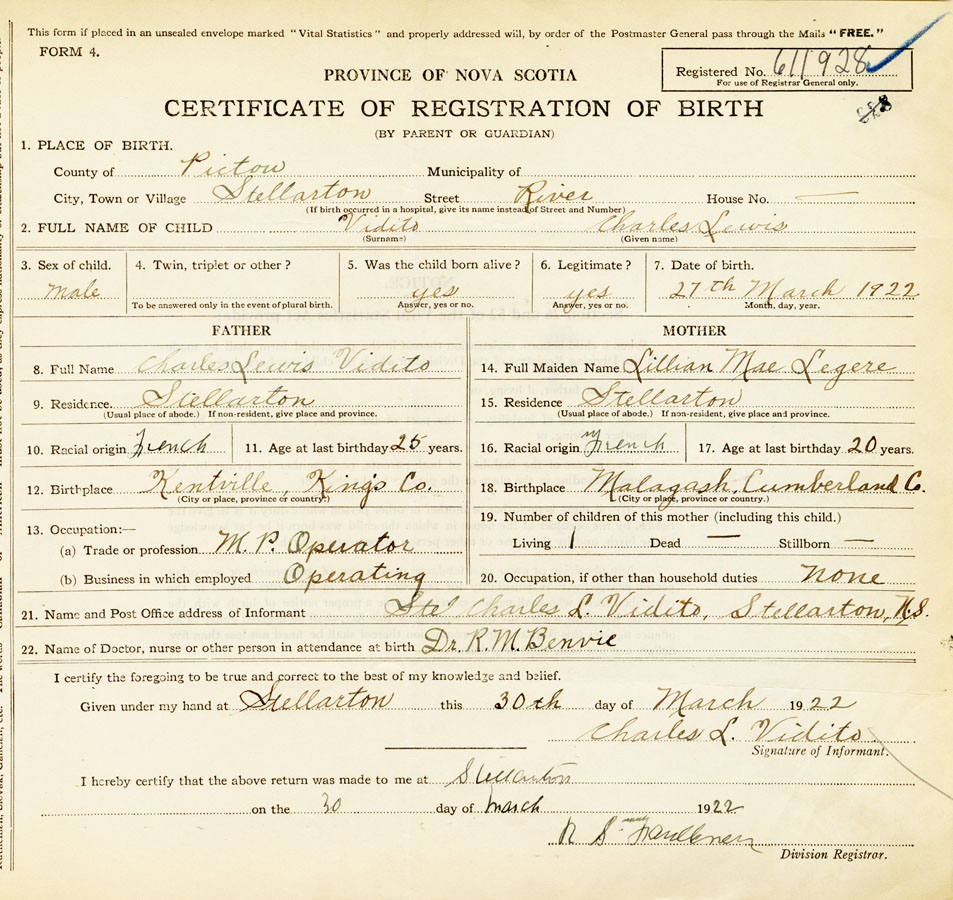 This form if placed in an unsealed envelope marked "Vital Statistics" and properly addressed will, by order of the Postmaster General pass through the Mails "FREE."
FORM 4.
Registered No. 611928
For use of Registrar General only.
PROVINCE OF NOVA SCOTIA
CERTIFICATE OF REGISTRATION OF BIRTH
(BY PARENT OR GUARDIAN)
1. PLACE OF BIRTH.
County of Pictou Municipality of
City, Town or Village Stellarton Street River House No. —
(If birth occurred in a hospital, give its name instead of Street and Number)
2. FULL NAME OF CHILD Vidito Charles Lewis
(Surname) (Given name)
3. Sex of child. 4. Twin, triplet or other? 5. Was the child born alive? 6. Legitimate? 7. Date of birth.
male yes yes 27th March 1922
To be answered only in the event of plural birth. Answer, yes or no. Answer, yes or no. Month, day, year.
FATHER
8. Full Name Charles Lewis Vidito
9. Residence. Stellarton
(Usual place of abode.) If non-resident, give place and province.
10. Racial origin French 11. Age at last birthday 25 years.
12. Birthplace Kentville, Kings Co.
(City or place, province or country.)
13. Occupation:—
(a) Trade or profession M. P. Operator
(b) Business in which employed Operating
MOTHER
14. Full Maiden Name Lillian Mae Legere
15. Residence Stellarton
(Usual place of abode.) If non-resident, give place and province.
16. Racial origin French 17. Age at last birthday 20 years.
18. Birthplace Malagash, Cumberland Co.
(City or place, province or country.)
19. Number of children of this mother (including this child.)
Living 1 Dead — Stillborn —
20. Occupation, if other than household duties none
21. Name and Post Office address of Informant Charles L. Vidito, Stellarton, N.S.
22. Name of Doctor, nurse or other person in attendance at birth Dr. R. M. Benvie
I certify the foregoing to be true and correct to the best of my knowledge and belief.
Given under my hand at Stellarton this 30th day of March 1922
Charles L. Vidito
Signature of Informant.
I hereby certify that the above return was made to me at Stellarton
on the 30 day of March 1922
Faulkner
Division Registrar.